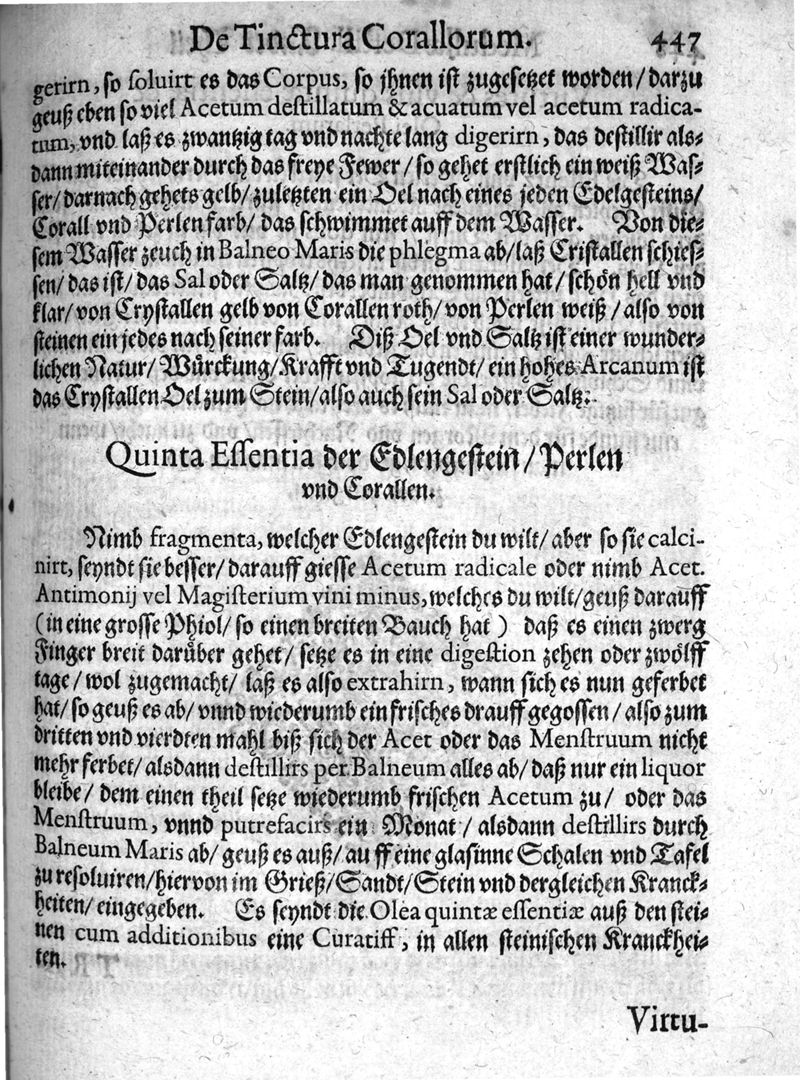 De Tinctura Corallorum. 447
gerirn, so soluirt es das Corpus, so jhnen ist zugesetzet worden/ darzu
geuß eben so viel Acetum destillatum & acuatum vel acetum radica-
tum, vnd laß es zwantzig tag vnd nachte lang digerirn, das destillir als-
dann miteinander durch das freye Fewer/ so gehet erstlich ein weiß Was-
ser/ darnach gehets gelb/ zuletzten ein Oel nach eines jeden Edelgesteins/
Corall vnd Perlen farb/ das schwimmet auff dem Wasser. Von die-
sem Wasser zeuch in Balneo Maris die phlegma ab/ laß Cristallen schies-
sen/ das ist/ das Sal oder Saltz/ das man genommen hat/ schön hell vnd
klar/ von Crystallen gelb von Corallen roth/ von Perlen weiß/ also von
steinen ein jedes nach seiner farb. Diß Oel vnd Saltz ist einer wunder-
lichen Natur/ Würckung/ Krafft vnd Tugendt/ ein hohes Arcanum ist
das Crystallen Oel zum Stein/ also auch sein Sal oder Saltz.
Quinta Essentia der Edlengestein/ Perlen
vnd Corallen.
Nimb fragmenta, welcher Edlengestein du wilt/ aber so sie calci-
nirt, seyndt sie besser/ darauff giesse Acetum radicale oder nimb Acet.
Antimonij vel Magisterium vini minus, welches du wilt/ geuß darauff
(in eine grosse Phiol/ so einen breiten Bauch hat) daß es einen zwerg
Finger breit darüber gehet/ setze es in eine digestion zehen oder zwölff
tage/ wol zugemacht/ laß es also extrahirn, wann sich es nun geferbet
hat/ so geuß es ab/ vnnd wiederumb ein frisches drauff gegossen/ also zum
dritten vnd vierdten mahl biß sich der Acet oder das Menstruum nicht
mehr ferbet/ alsdann destillirs per Balneum alles ab/ daß nur ein liquor
bleibe/ dem einen theil setze wiederumb frischen Acetum zu/ oder das
Menstruum, vnnd putrefacirs ein Monat/ alsdann destillirs durch
Balneum Maris ab/ geuß es auß/ auff eine glasinne Schalen vnd Tafel
zu resoluiren/ hiervon im Grieß/ Sandt/ Stein vnd dergleichen Kranck-
heiten/ eingegeben. Es seyndt die Olea quintæ essentiæ auß den stei-
nen cum additionibus eine Curatiff, in allen steinischen Kranckhei-
ten.
Virtu-